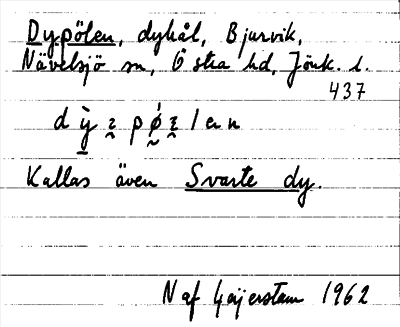 Dypölen, dyhål, Bjurvik,
Nävelsjö sn, Östra hd, Jönk. l.
437
Kallas även Svarte dy.
N af Geijerstam 1962